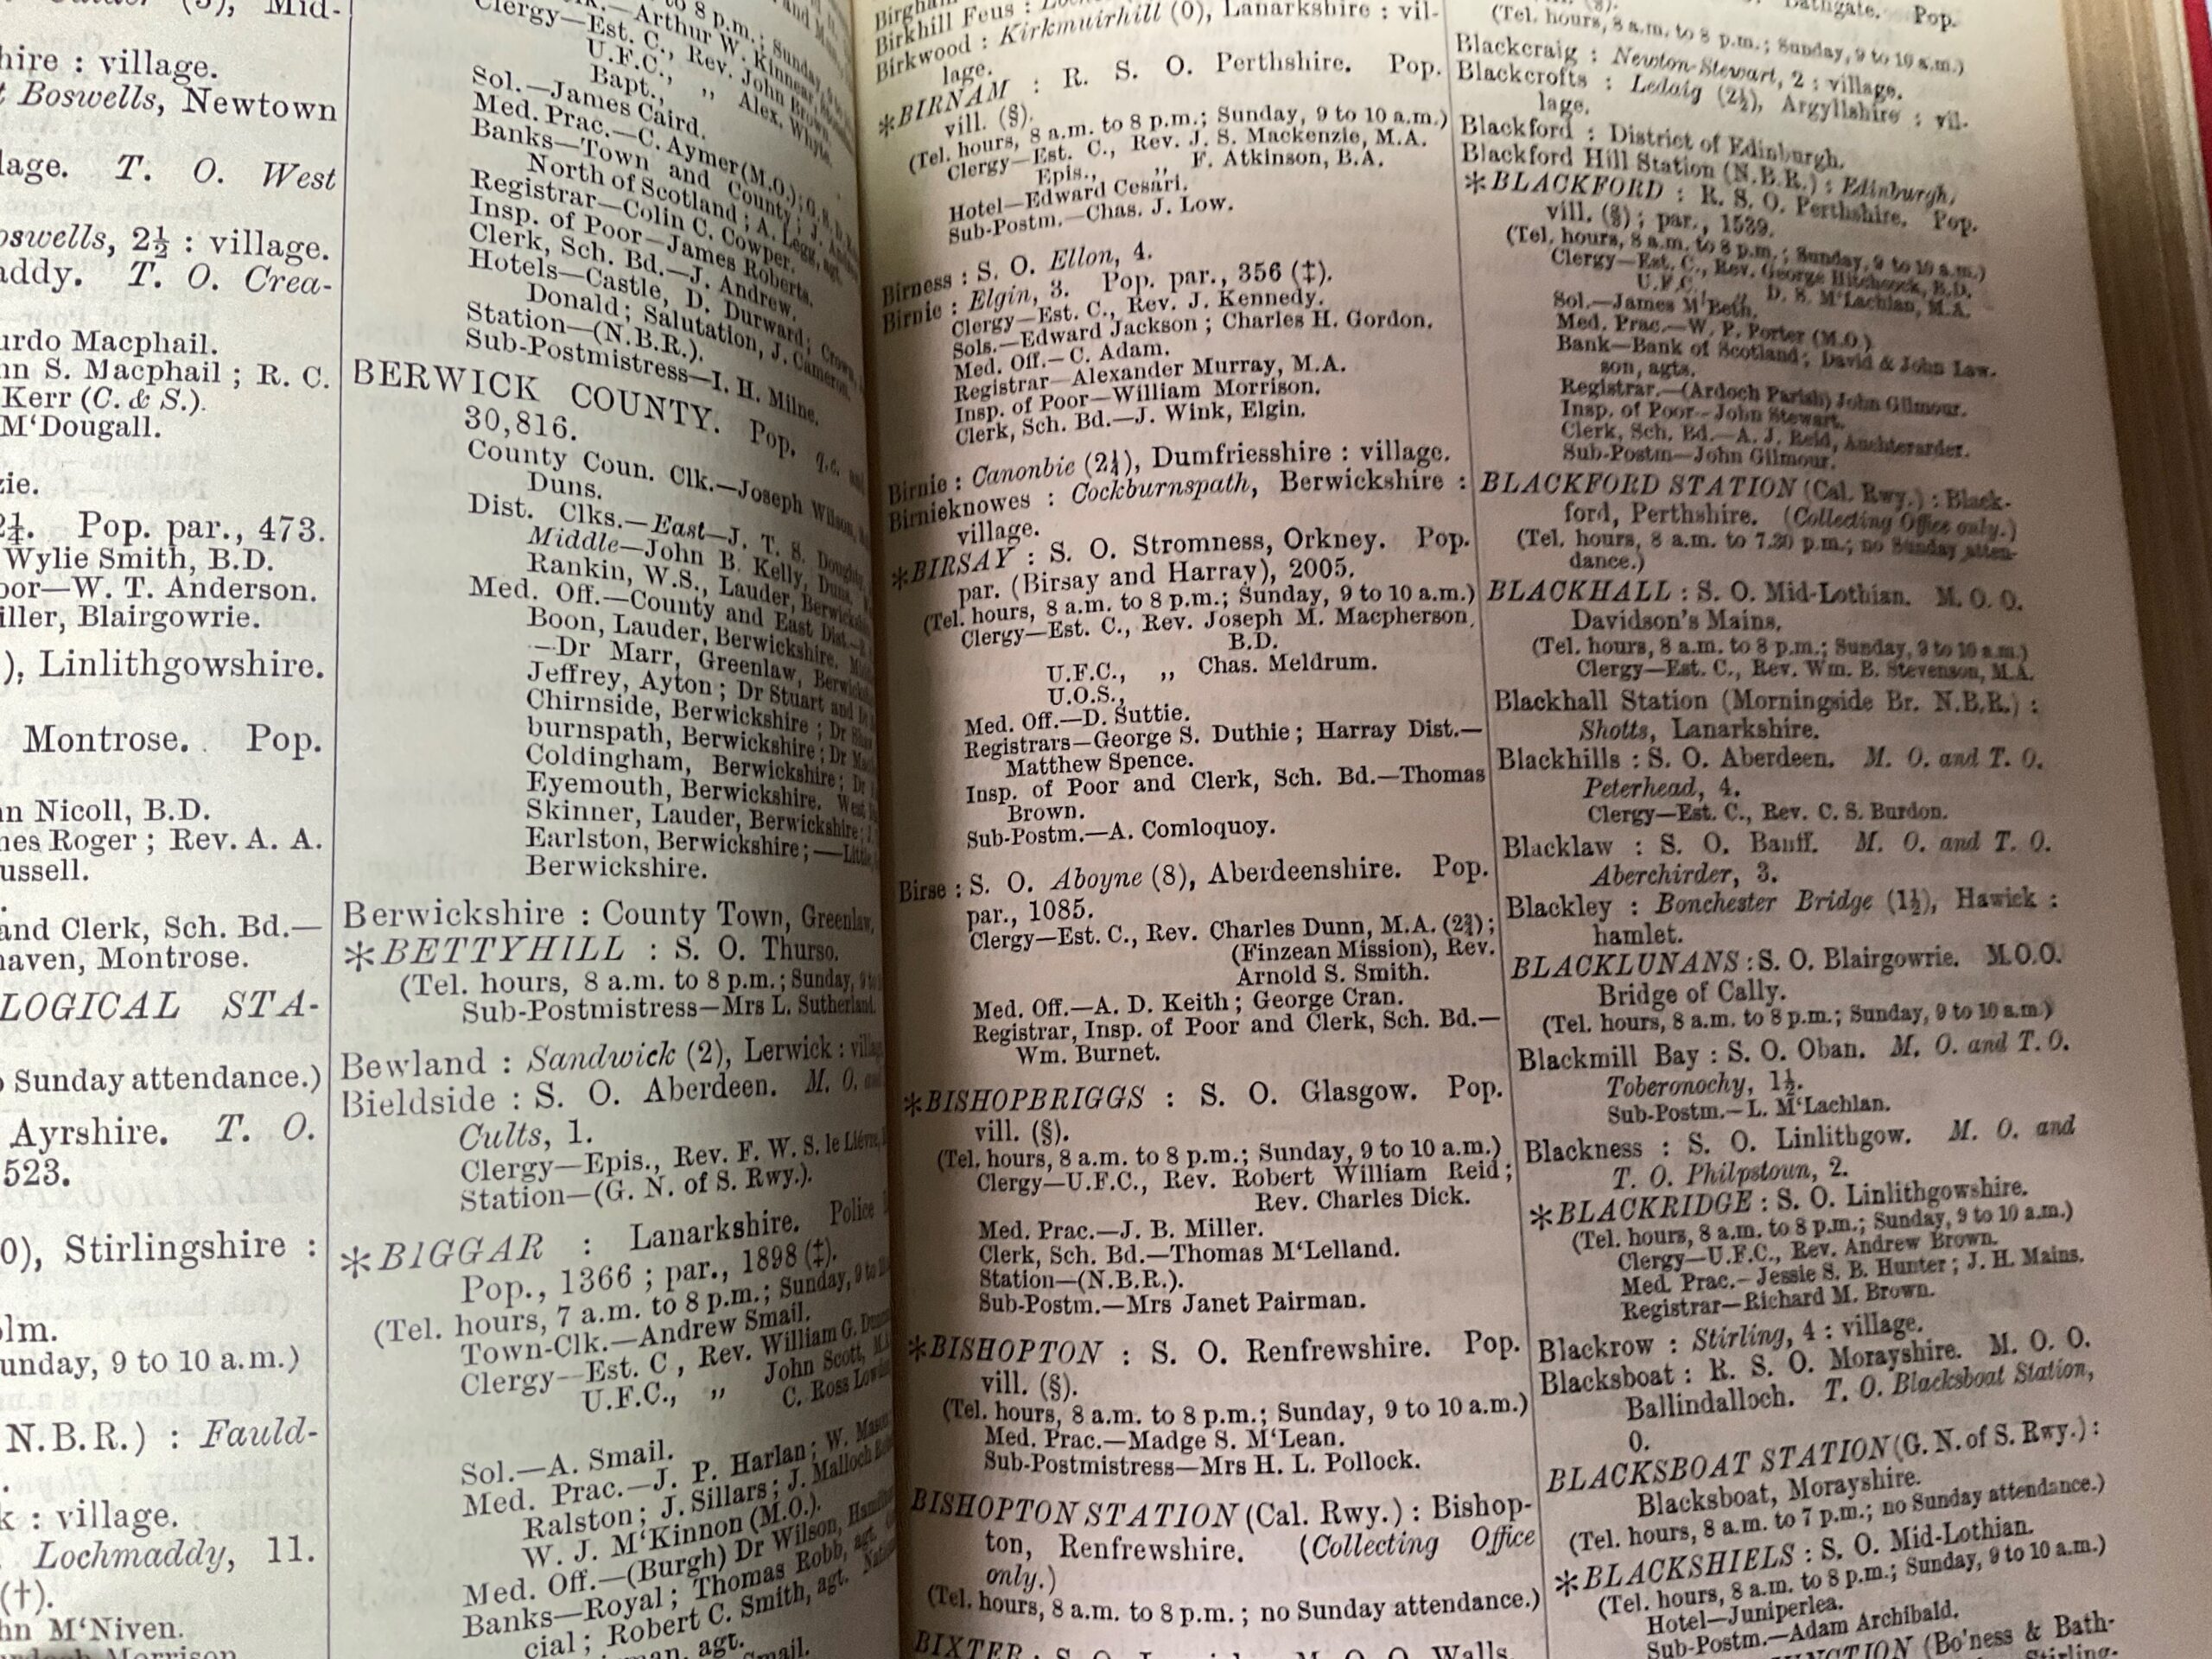 Mid-
hire : village.
Boswells, Newtown
lage. T. O. West
oswells, 2½ : village.
addy. T. O. Crea-
urdo Macphail.
nn S. Macphail ; R. C.
Kerr (C. & S.).
M‘Dougall.
zie.
2¼. Pop. par., 473.
Wylie Smith, B.D.
oor—W. T. Anderson.
iller, Blairgowrie.
), Linlithgowshire.
Montrose. Pop.
nn Nicoll, B.D.
mes Roger ; Rev. A. A.
ussell.
and Clerk, Sch. Bd.—
haven, Montrose.
LOGICAL STA-
Sunday attendance.)
Ayrshire. T. O.
523.
0), Stirlingshire :
olm.
unday, 9 to 10 a.m.)
N.B.R.) : Fauld-
k : village.
Lochmaddy, 11.
(†).
hn M‘Niven.
Morrison
to 8 p.m. ; Sunday,
Arthur W. Kinnear,
Clergy—Est. C., Rev. John Brown
U.F.C., „ Alex. Whyte.
Bapt.,
Sol.—James Caird.
Med. Prac.—C. Aymer (M.O.);
Banks—Town and County; J.
North of Scotland ; A. Legg, agt.
Registrar—Colin C. Cowper.
Insp. of Poor—James Roberts.
Clerk, Sch. Bd.—J. Andrew.
Hotels—Castle, D. Durward; Crown,
Donald; Salutation, J. Cameron.
Station—(N.B.R.).
Sub-Postmistress—I. H. Milne.
BERWICK COUNTY. Pop.
30,816.
County Coun. Clk.—Joseph Wilson,
Duns.
Dist. Clks.—East—J. T. S. Doughty,
Middle—John B. Kelly, Duns.
Rankin, W.S., Lauder, Berwickshire
Med. Off.—County and East Dist.—
Boon, Lauder, Berwickshire.
—Dr Marr, Greenlaw, Berwickshire
Jeffrey, Ayton ; Dr Stuart and
Chirnside, Berwickshire ; Dr
burnspath, Berwickshire ; Dr
Coldingham, Berwickshire ; Dr
Eyemouth, Berwickshire. West
Skinner, Lauder, Berwickshire ;
Earlston, Berwickshire ;—
Berwickshire.
Berwickshire : County Town, Greenlaw,
*BETTYHILL : S. O. Thurso.
(Tel. hours, 8 a.m. to 8 p.m. ; Sunday, 9 to
Sub-Postmistress—Mrs L. Sutherland.
Bewland : Sandwick (2), Lerwick : village
Bieldside : S. O. Aberdeen. M. O. and
Cults, 1.
Clergy—Epis., Rev. F. W. S. le Liévre,
Station—(G. N. of S. Rwy.).
*BIGGAR : Lanarkshire. Police
Pop., 1366 ; par., 1898 (‡).
(Tel. hours, 7 a.m. to 8 p.m. ; Sunday, 9 to
Town-Clk.—Andrew Smail.
Clergy—Est. C , Rev. William G.
U.F.C., „ John Scott,
C. Ross
Sol.—A. Smail.
Med. Prac.—J. P. Harlan ; W. Mason
Ralston ; J. Sillars ; J. Malloch
W. J. M‘Kinnon (M.O.).
Med. Off.—(Burgh) Dr Wilson,
Banks—Royal ; Thomas Robb, agt.
cial ; Robert C. Smith, agt.
agt.
Birkhill Feus :
Birkwood : Kirkmuirhill (0), Lanarkshire : vil-
lage.
*BIRNAM : R. S. O. Perthshire. Pop.
vill. (§).
(Tel. hours, 8 a.m. to 8 p.m. ; Sunday, 9 to 10 a.m.)
Clergy—Est. C., Rev. J. S. Mackenzie, M.A.
Epis., „ F. Atkinson, B.A.
Hotel—Edward Cesari.
Sub-Postm.—Chas. J. Low.
Birness : S. O. Ellon, 4.
Birnie : Elgin, 3. Pop. par., 356 (‡).
Clergy—Est. C., Rev. J. Kennedy.
Sols.—Edward Jackson ; Charles H. Gordon.
Med. Off.—C. Adam.
Registrar—Alexander Murray, M.A.
Insp. of Poor—William Morrison.
Clerk, Sch. Bd.—J. Wink, Elgin.
Birnie : Canonbie (2¼), Dumfriesshire : village.
Birnieknowes : Cockburnspath, Berwickshire :
village.
*BIRSAY : S. O. Stromness, Orkney. Pop.
par. (Birsay and Harray), 2005.
(Tel. hours, 8 a.m. to 8 p.m. ; Sunday, 9 to 10 a.m.)
Clergy—Est. C., Rev. Joseph M. Macpherson,
B.D.
U.F.C., „ Chas. Meldrum.
U.O.S.,
Med. Off.—D. Suttie.
Registrars—George S. Duthie ; Harray Dist.—
Matthew Spence.
Insp. of Poor and Clerk, Sch. Bd.—Thomas
Brown.
Sub-Postm.—A. Comloquoy.
Birse : S. O. Aboyne (8), Aberdeenshire. Pop.
par., 1085.
Clergy—Est. C., Rev. Charles Dunn, M.A. (2¾) ;
(Finzean Mission), Rev.
Arnold S. Smith.
Med. Off.—A. D. Keith ; George Cran.
Registrar, Insp. of Poor and Clerk, Sch. Bd.—
Wm. Burnet.
*BISHOPBRIGGS : S. O. Glasgow. Pop.
vill. (§).
(Tel. hours, 8 a.m. to 8 p.m. ; Sunday, 9 to 10 a.m.)
Clergy—U.F.C., Rev. Robert William Reid ;
Rev. Charles Dick.
Med. Prac.—J. B. Miller.
Clerk, Sch. Bd.—Thomas M‘Lelland.
Station—(N.B.R.).
Sub-Postm.—Mrs Janet Pairman.
*BISHOPTON : S. O. Renfrewshire. Pop.
vill. (§).
(Tel. hours, 8 a.m. to 8 p.m. ; Sunday, 9 to 10 a.m.)
Med. Prac.—Madge S. M‘Lean.
Sub-Postmistress—Mrs H. L. Pollock.
BISHOPTON STATION (Cal. Rwy.) : Bishop-
ton, Renfrewshire. (Collecting Office
only.)
(Tel. hours, 8 a.m. to 8 p.m. ; no Sunday attendance.)
BIXTER : S. O. M. O. O. Walls.
Bathgate. Pop.
(Tel. hours, 8 a.m. to 8 p.m. ; Sunday, 9 to 10 a.m.)
Blackcraig : Newton-Stewart, 2 : village.
Blackcrofts : Ledaig (2½), Argyllshire : vil-
lage.
Blackford : District of Edinburgh.
Blackford Hill Station (N.B.R.) : Edinburgh,
*BLACKFORD : R. S. O. Perthshire. Pop.
vill. (§) ; par., 1539.
(Tel. hours, 8 a.m. to 8 p.m. ; Sunday, 9 to 10 a.m.)
Clergy—Est. C., Rev. George Hitchcock, B.D.
U.F.C., „ D. S. M‘Lachlan, M.A.
Sol.—James M‘Beth.
Med. Prac.—W. P. Porter (M.O.)
Bank—Bank of Scotland ; David & John Law-
son, agts.
Registrar.—(Ardoch Parish) John Gilmour.
Insp. of Poor—John Stewart.
Clerk, Sch. Bd.—A. J. Reid, Auchterarder.
Sub-Postm—John Gilmour.
BLACKFORD STATION (Cal. Rwy.) : Black-
ford, Perthshire. (Collecting Office only.)
(Tel. hours, 8 a.m. to 7.30 p.m. ; no Sunday atten-
dance.)
BLACKHALL : S. O. Mid-Lothian. M. O. O.
Davidson's Mains.
(Tel. hours, 8 a.m. to 8 p.m. ; Sunday, 9 to 10 a.m.)
Clergy—Est. C., Rev. Wm. B. Stevenson, M.A.
Blackhall Station (Morningside Br. N.B.R.) :
Shotts, Lanarkshire.
Blackhills : S. O. Aberdeen. M. O. and T. O.
Peterhead, 4.
Clergy—Est. C., Rev. C. S. Burdon.
Blacklaw : S. O. Banff. M. O. and T. O.
Aberchirder, 3.
Blackley : Bonchester Bridge (1½), Hawick :
hamlet.
BLACKLUNANS : S. O. Blairgowrie. M.O.O.
Bridge of Cally.
(Tel. hours, 8 a.m. to 8 p.m. ; Sunday, 9 to 10 a.m.)
Blackmill Bay : S. O. Oban. M. O. and T. O.
Toberonochy, 1½.
Sub-Postm.—L. M‘Lachlan.
Blackness : S. O. Linlithgow. M. O. and
T. O. Philpstoun, 2.
*BLACKRIDGE : S. O. Linlithgowshire.
(Tel. hours, 8 a.m. to 8 p.m. ; Sunday, 9 to 10 a.m.)
Clergy—U.F.C., Rev. Andrew Brown.
Med. Prac.—Jessie S. B. Hunter ; J. H. Mains.
Registrar—Richard M. Brown.
Blackrow : Stirling, 4 : village.
Blacksboat : R. S. O. Morayshire. M. O. O.
Ballindalloch. T. O. Blacksboat Station,
0.
BLACKSBOAT STATION (G. N. of S. Rwy.) :
Blacksboat, Morayshire.
(Tel. hours, 8 a.m. to 7 p.m. ; no Sunday attendance.)
*BLACKSHIELS : S. O. Mid-Lothian.
(Tel. hours, 8 a.m. to 8 p.m. ; Sunday, 9 to 10 a.m.)
Hotel—Juniperlea.
Sub-Postm.—Adam Archibald.
(Bo'ness & Bath-
Stirling-